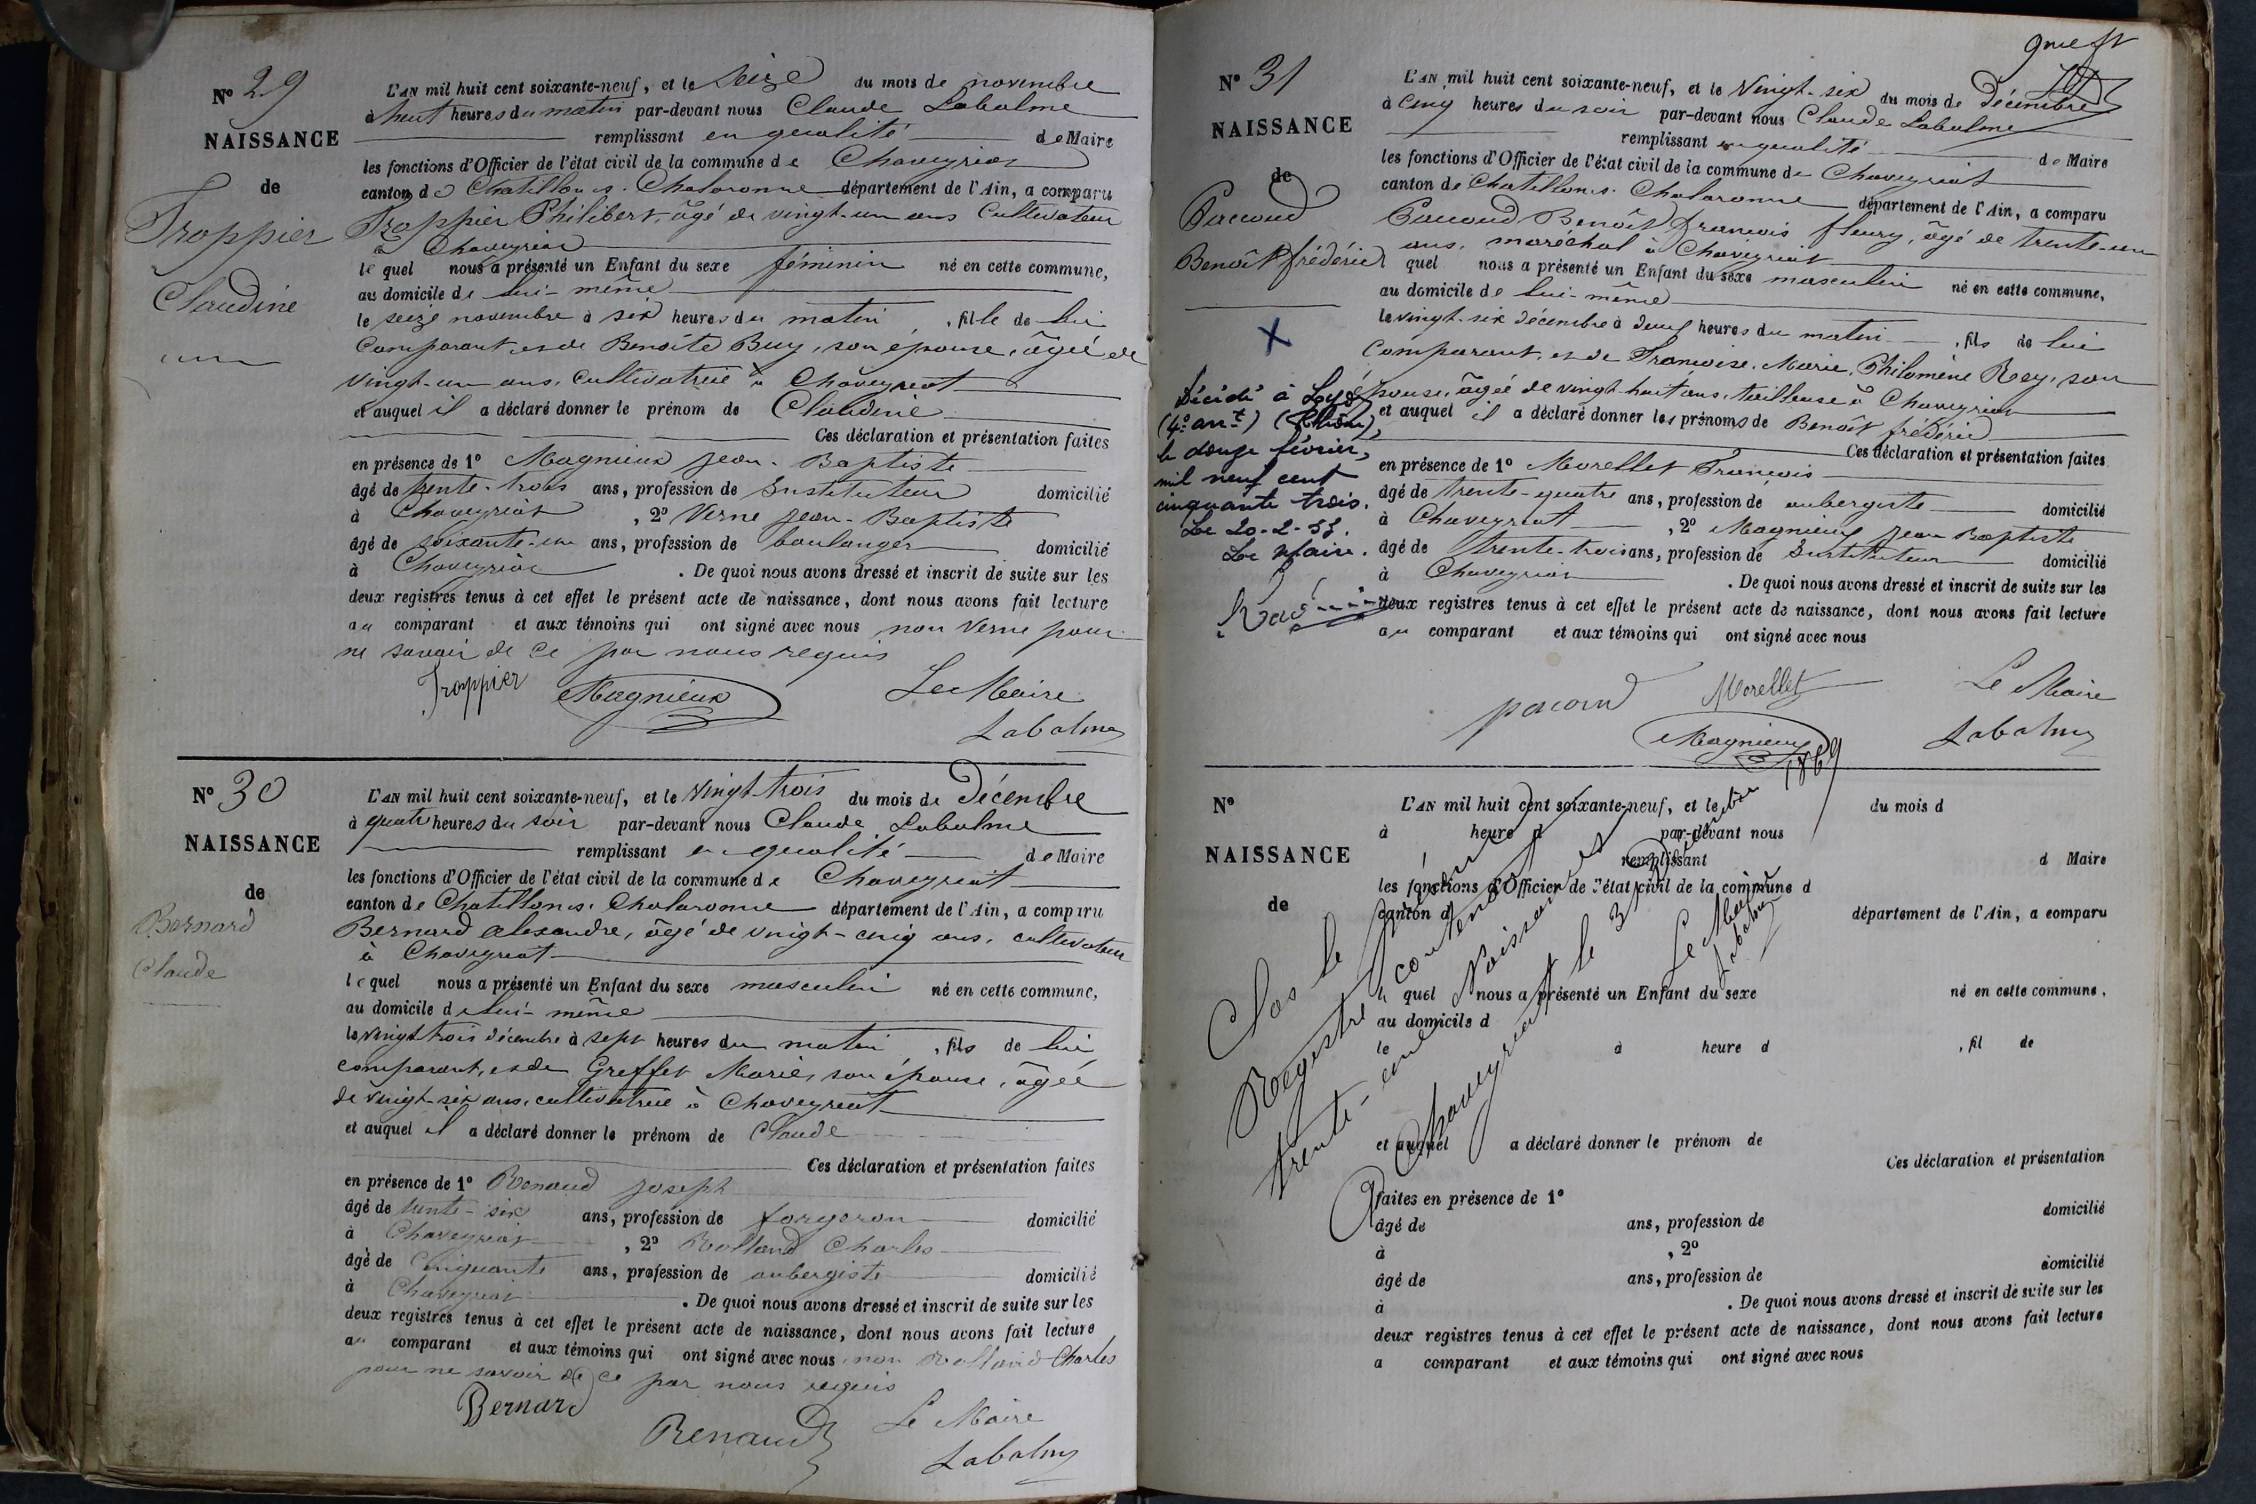 N° 29
NAISSANCE
de
Troppier
Claudine
L'AN mil huit cent soixante-neuf, et le seize du mois de novembre
à huit heures du matin par-devant nous Claude Labalme
remplissant en qualité de Maire
les fonctions d'Officier de l'état civil de la commune de Chaveyriat
canton de Chatillon-s-Chalaronne département de l'Ain, a comparu
Troppier Philibert, âgé de vingt-un ans Cultivateur
à Chaveyriat
lequel nous a présenté un Enfant du sexe féminin né en cette commune,
au domicile de lui-même
le seize novembre à six heures du matin, fille de lui
Comparant, et de Benoîte Buy, son épouse, âgée de
vingt-un ans, cultivatrice à Chaveyriat
et auquel il a déclaré donner le prénom de Claudine
Ces déclaration et présentation faites
en présence de 1° Magnieux Jean-Baptiste
âgé de trente-trois ans, profession de Instituteur domicilié
à Chaveyriat, 2° Verne Jean-Baptiste
âgé de soixante-un ans, profession de boulanger domicilié
à Chaveyriat. De quoi nous avons dressé et inscrit de suite sur les
deux registres tenus à cet effet le présent acte de naissance, dont nous avons fait lecture
au comparant et aux témoins qui ont signé avec nous non Verne pour
ne savoir de ce par nous requis
Troppier Magnieux Le Maire
Labalme
N° 30
NAISSANCE
de
Bernard
Claude
L'AN mil huit cent soixante-neuf, et le vingt trois du mois de Décembre
à quatre heures du soir par-devant nous Claude Labalme
remplissant en qualité de Maire
les fonctions d'Officier de l'état civil de la commune de Chaveyriat
canton de Chatillon-s-Chalaronne département de l'Ain, a comparu
Bernard Alexandre, âgé de vingt-cinq ans, cultivateur
à Chaveyriat
lequel nous a présenté un Enfant du sexe masculin né en cette commune,
au domicile de lui-même
le vingt trois décembre à sept heures du matin, fils de lui
comparant, et de Greffet Marie, son épouse, âgée
de vingt-six ans, cultivatrice à Chaveyriat
et auquel il a déclaré donner le prénom de Claude
Ces déclaration et présentation faites
en présence de 1° Renaud Joseph
âgé de trente-six ans, profession de forgeron domicilié
à Chaveyriat, 2° Rolland Charles
âgé de cinquante ans, profession de aubergiste domicilié
à Chaveyriat. De quoi nous avons dressé et inscrit de suite sur les
deux registres tenus à cet effet le présent acte de naissance, dont nous avons fait lecture
au comparant et aux témoins qui ont signé avec nous non Rolland Charles
pour ne savoir de ce par nous requis
Bernard
Renaud Le Maire
Labalme
N° 31
NAISSANCE
de
Pacoud
Benoît frédéric
X
Décédé à Lyon
(4e arrt) (Rhône),
le douze février,
mil neuf cent
cinquante trois.
Le 20-2-53.
Le Maire.
L'AN mil huit cent soixante-neuf, et le Vingt-six du mois de Décembre
à cinq heures du soir par-devant nous Claude Labalme
remplissant en qualité de Maire
les fonctions d'Officier de l'état civil de la commune de Chaveyriat
canton de Chatillon-s-Chalaronne département de l'Ain, a comparu
Pacoud Benoît françois fleury, âgé de trente-un
ans, maréchal à Chaveyriat
quel nous a présenté un Enfant du sexe masculin né en cette commune,
au domicile de lui-même
le vingt-six décembre à deux heures du matin, fils de lui
Comparant, et de Francoise, Marie, Philomène Rey, son
épouse, âgée de vingt-huit ans, tailleuse à Chaveyriat
et auquel il a déclaré donner les prénoms de Benoît frédéric
Ces déclaration et présentation faites
en présence de 1° Morellet François
âgé de trente-quatre ans, profession de aubergiste domicilié
à Chaveyriat, 2° Magnieux Jean Baptiste
âgé de trente-trois ans, profession de Instituteur domicilié
à Chaveyriat. De quoi nous avons dressé et inscrit de suite sur les
deux registres tenus à cet effet le présent acte de naissance, dont nous avons fait lecture
au comparant et aux témoins qui ont signé avec nous
pacoud Morellet Le Maire
Magnieux Labalme
N°
NAISSANCE
de
L'AN mil huit cent soixante-neuf, et le du mois d
à heure d par-devant nous
remplissant d Maire
les fonctions d'Officier de l'état civil de la commune d
canton d département de l'Ain, a comparu
quel nous a présenté un Enfant du sexe né en cette commune,
au domicile d
le à heure d , fil de
et auquel a déclaré donner le prénom de
Ces déclaration et présentation
faites en présence de 1°
âgé de ans, profession de domicilié
à , 2°
âgé de ans, profession de domicilié
à . De quoi nous avons dressé et inscrit de suite sur les
deux registres tenus à cet effet le présent acte de naissance, dont nous avons fait lecture
a comparant et aux témoins qui ont signé avec nous
Clos le présent
Registre contenant
trente-une Naissances
A Chaveyriat le 31 Décembre 1869
Le Maire
Labalme